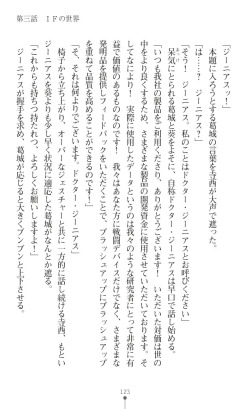 第三話　IFの世界
「ジーニアスッ！」
本題に入ろうとする葛城の言葉を寺西が大声で遮った。
「は……？　ジーニアス？」
「そう！　ジーニアス。私のことはドクター・ジーニアスとお呼びください」
呆気にとられる葛城と葵をそこに、自称ドクター・ジーニアスは早口で話し始める。
「いつも我社の製品をご利用くださり、ありがとうございます！　いただいた対価は世の
中をより良くするため、さまざまな製品の開発資金に使用させていただいております。そ
してなにより！　実際に使用したデータというのは我々の研究者にとって非常に有
益で価値のあるものなのです！　我々はあなた方に戦闘デバイスだけでなく、さまざまな
製品を提供しフィードバックをいただくことで、ブラッシュアップにブラッシュアップ
を重ねて品質を高めることができるのです！」
「そ、それは何よりでございます。ドクター・ジーニアス」
椅子から立ち上がり、オーバーなジェスチャーと共に一方的に話し続ける寺西、もとい
ジーニアスを葵よりも少し早く状況に適応した葛城がなんとか遮る。
「これからも持ちつ持たれつ、よろしくお願いしますよ！」
ジーニアスが握手を求め、葛城が応じると大きくブンブンと上下させる。
173